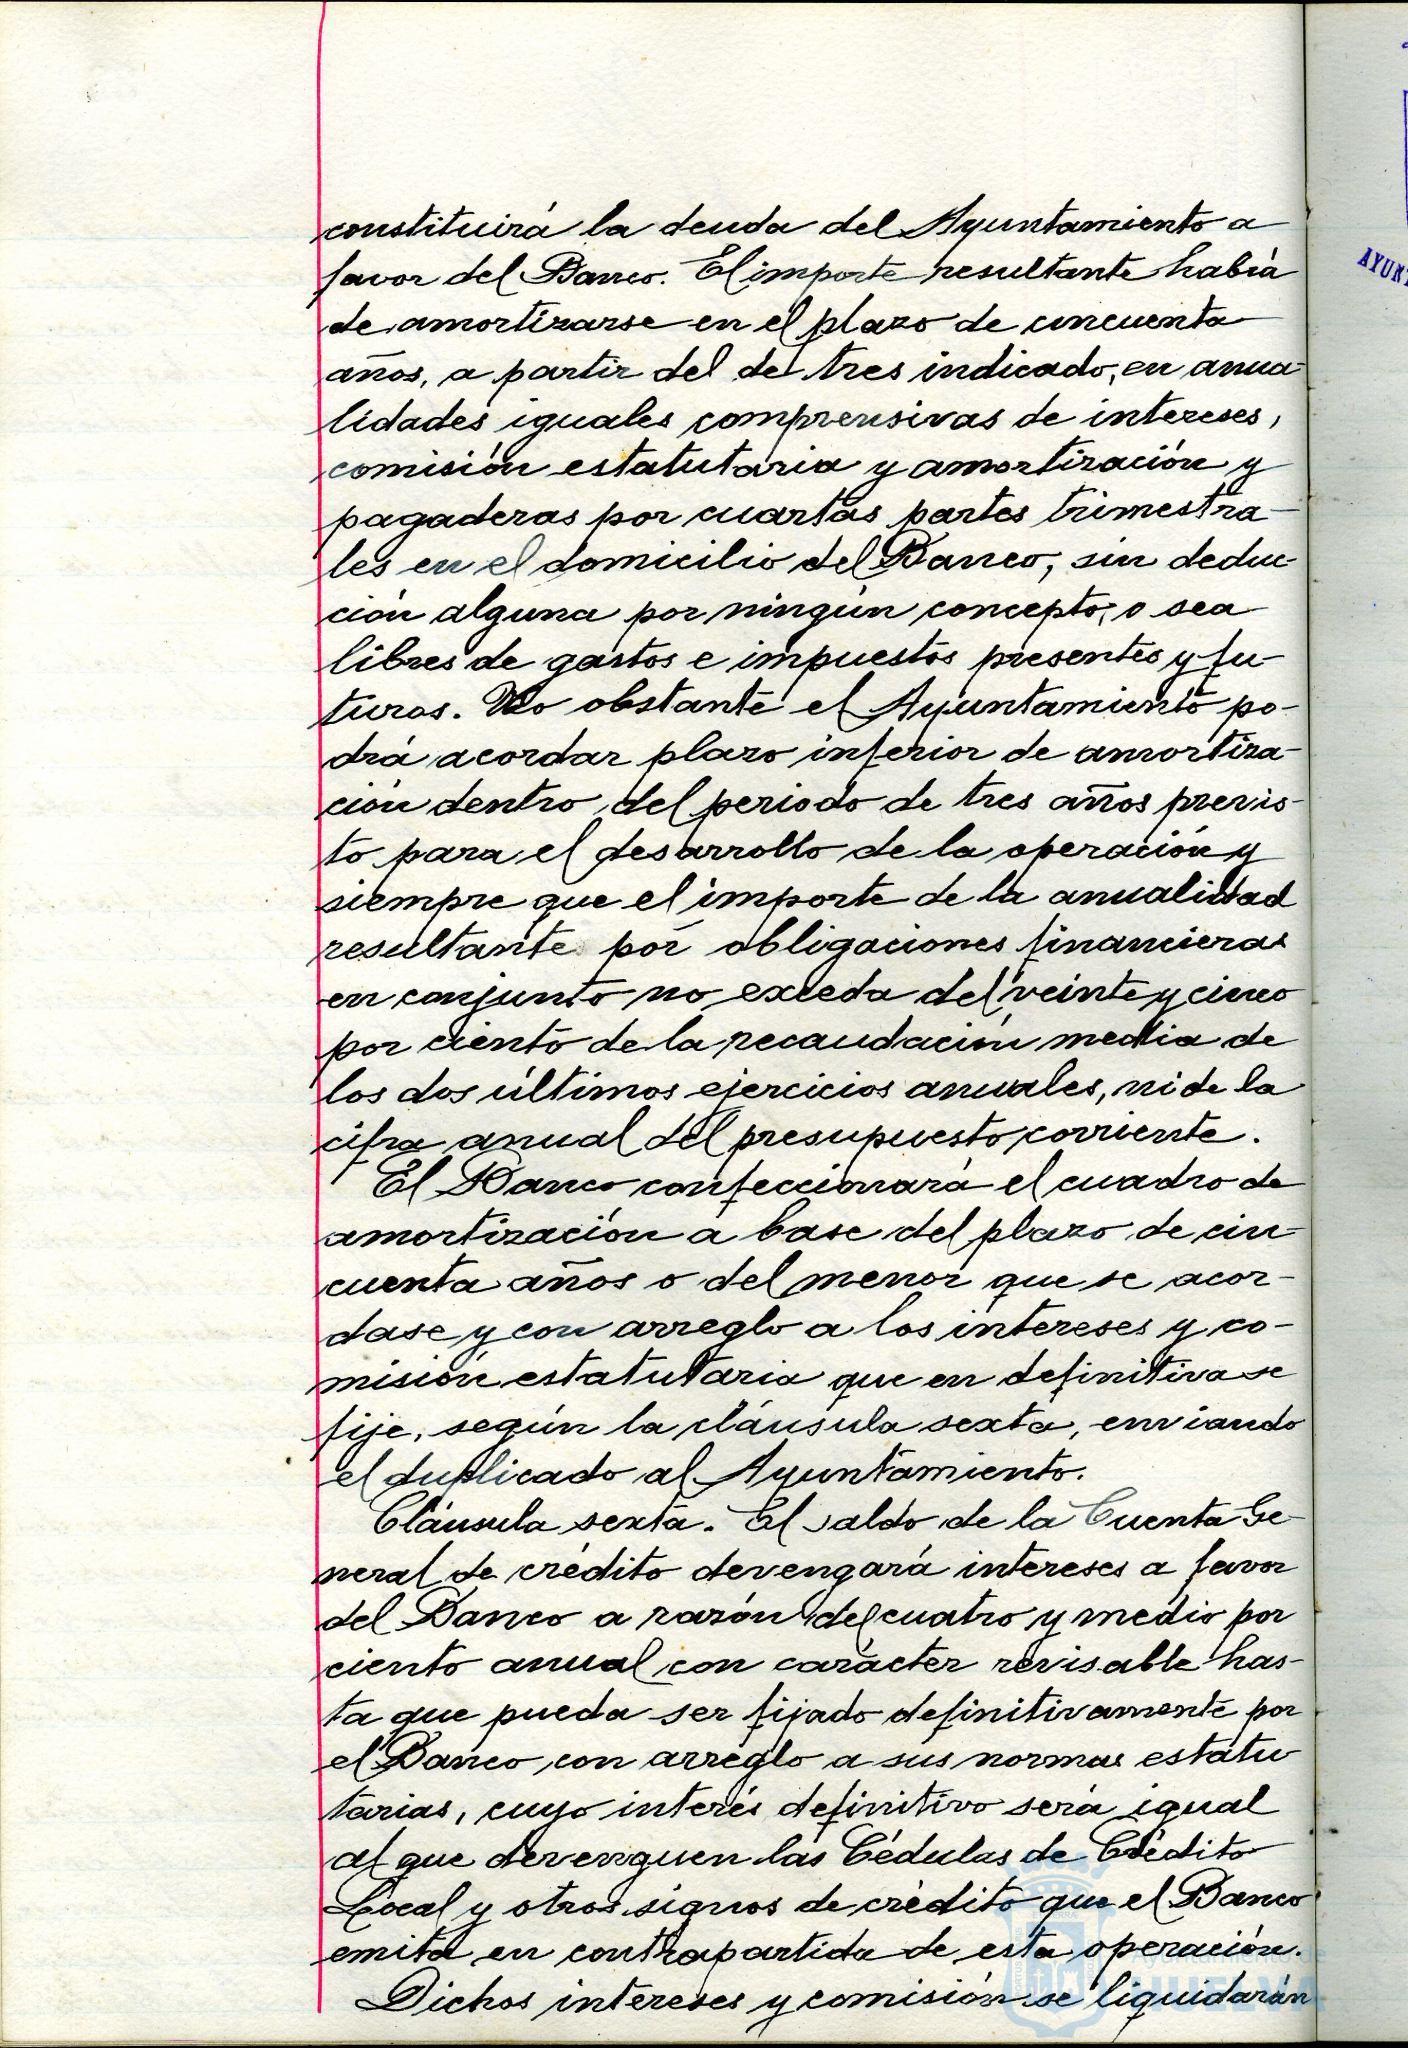 constituirá la deuda del Ayuntamiento a
favor del Banco. El importe resultante habrá
de amortizarse en el plazo de cincuenta
años, a partir del de tres indicado, en anua-
lidades iguales comprensivas de intereses,
comisión estatutaria y amortización y
pagaderas por cuartas partes trimestra-
les en el domicilio del Banco, sin deduc-
ción alguna por ningún concepto, o sea
libres de gastos e impuestos presentes y fu-
turos. No obstante el Ayuntamiento po-
drá acordar plazo inferior de amortiza-
ción dentro del periodo de tres años previs-
to para el desarrollo de la operación y
siempre que el importe de la anualidad
resultante por obligaciones financieras
en conjunto no exceda del veinte y cinco
por ciento de la recaudación media de
los dos últimos ejercicios anuales, ni de la
cifra anual del presupuesto corriente.
El Banco confeccionará el cuadro de
amortización a base del plazo de cin-
cuenta años o del menor que se acor-
dase y con arreglo a los intereses y co-
misión estatutaria que en definitiva se
fije, según la cláusula sexta, enviando
el duplicado al Ayuntamiento.
Cláusula sexta. El saldo de la Cuenta Ge-
neral de crédito devengará intereses a favor
del Banco a razón del cuatro y medio por
ciento anual con carácter revisable has-
ta que pueda ser fijado definitivamente por
el Banco con arreglo a sus normas estatu-
tarias, cuyo interés definitivo será igual
al que devenguen las Cédulas de Crédito
Local y otros signos de crédito que el Banco
emita en contrapartida de esta operación.
Dichos intereses y comisión se liquidarán
AYUNT
Ayuntamiento de
HUELVA